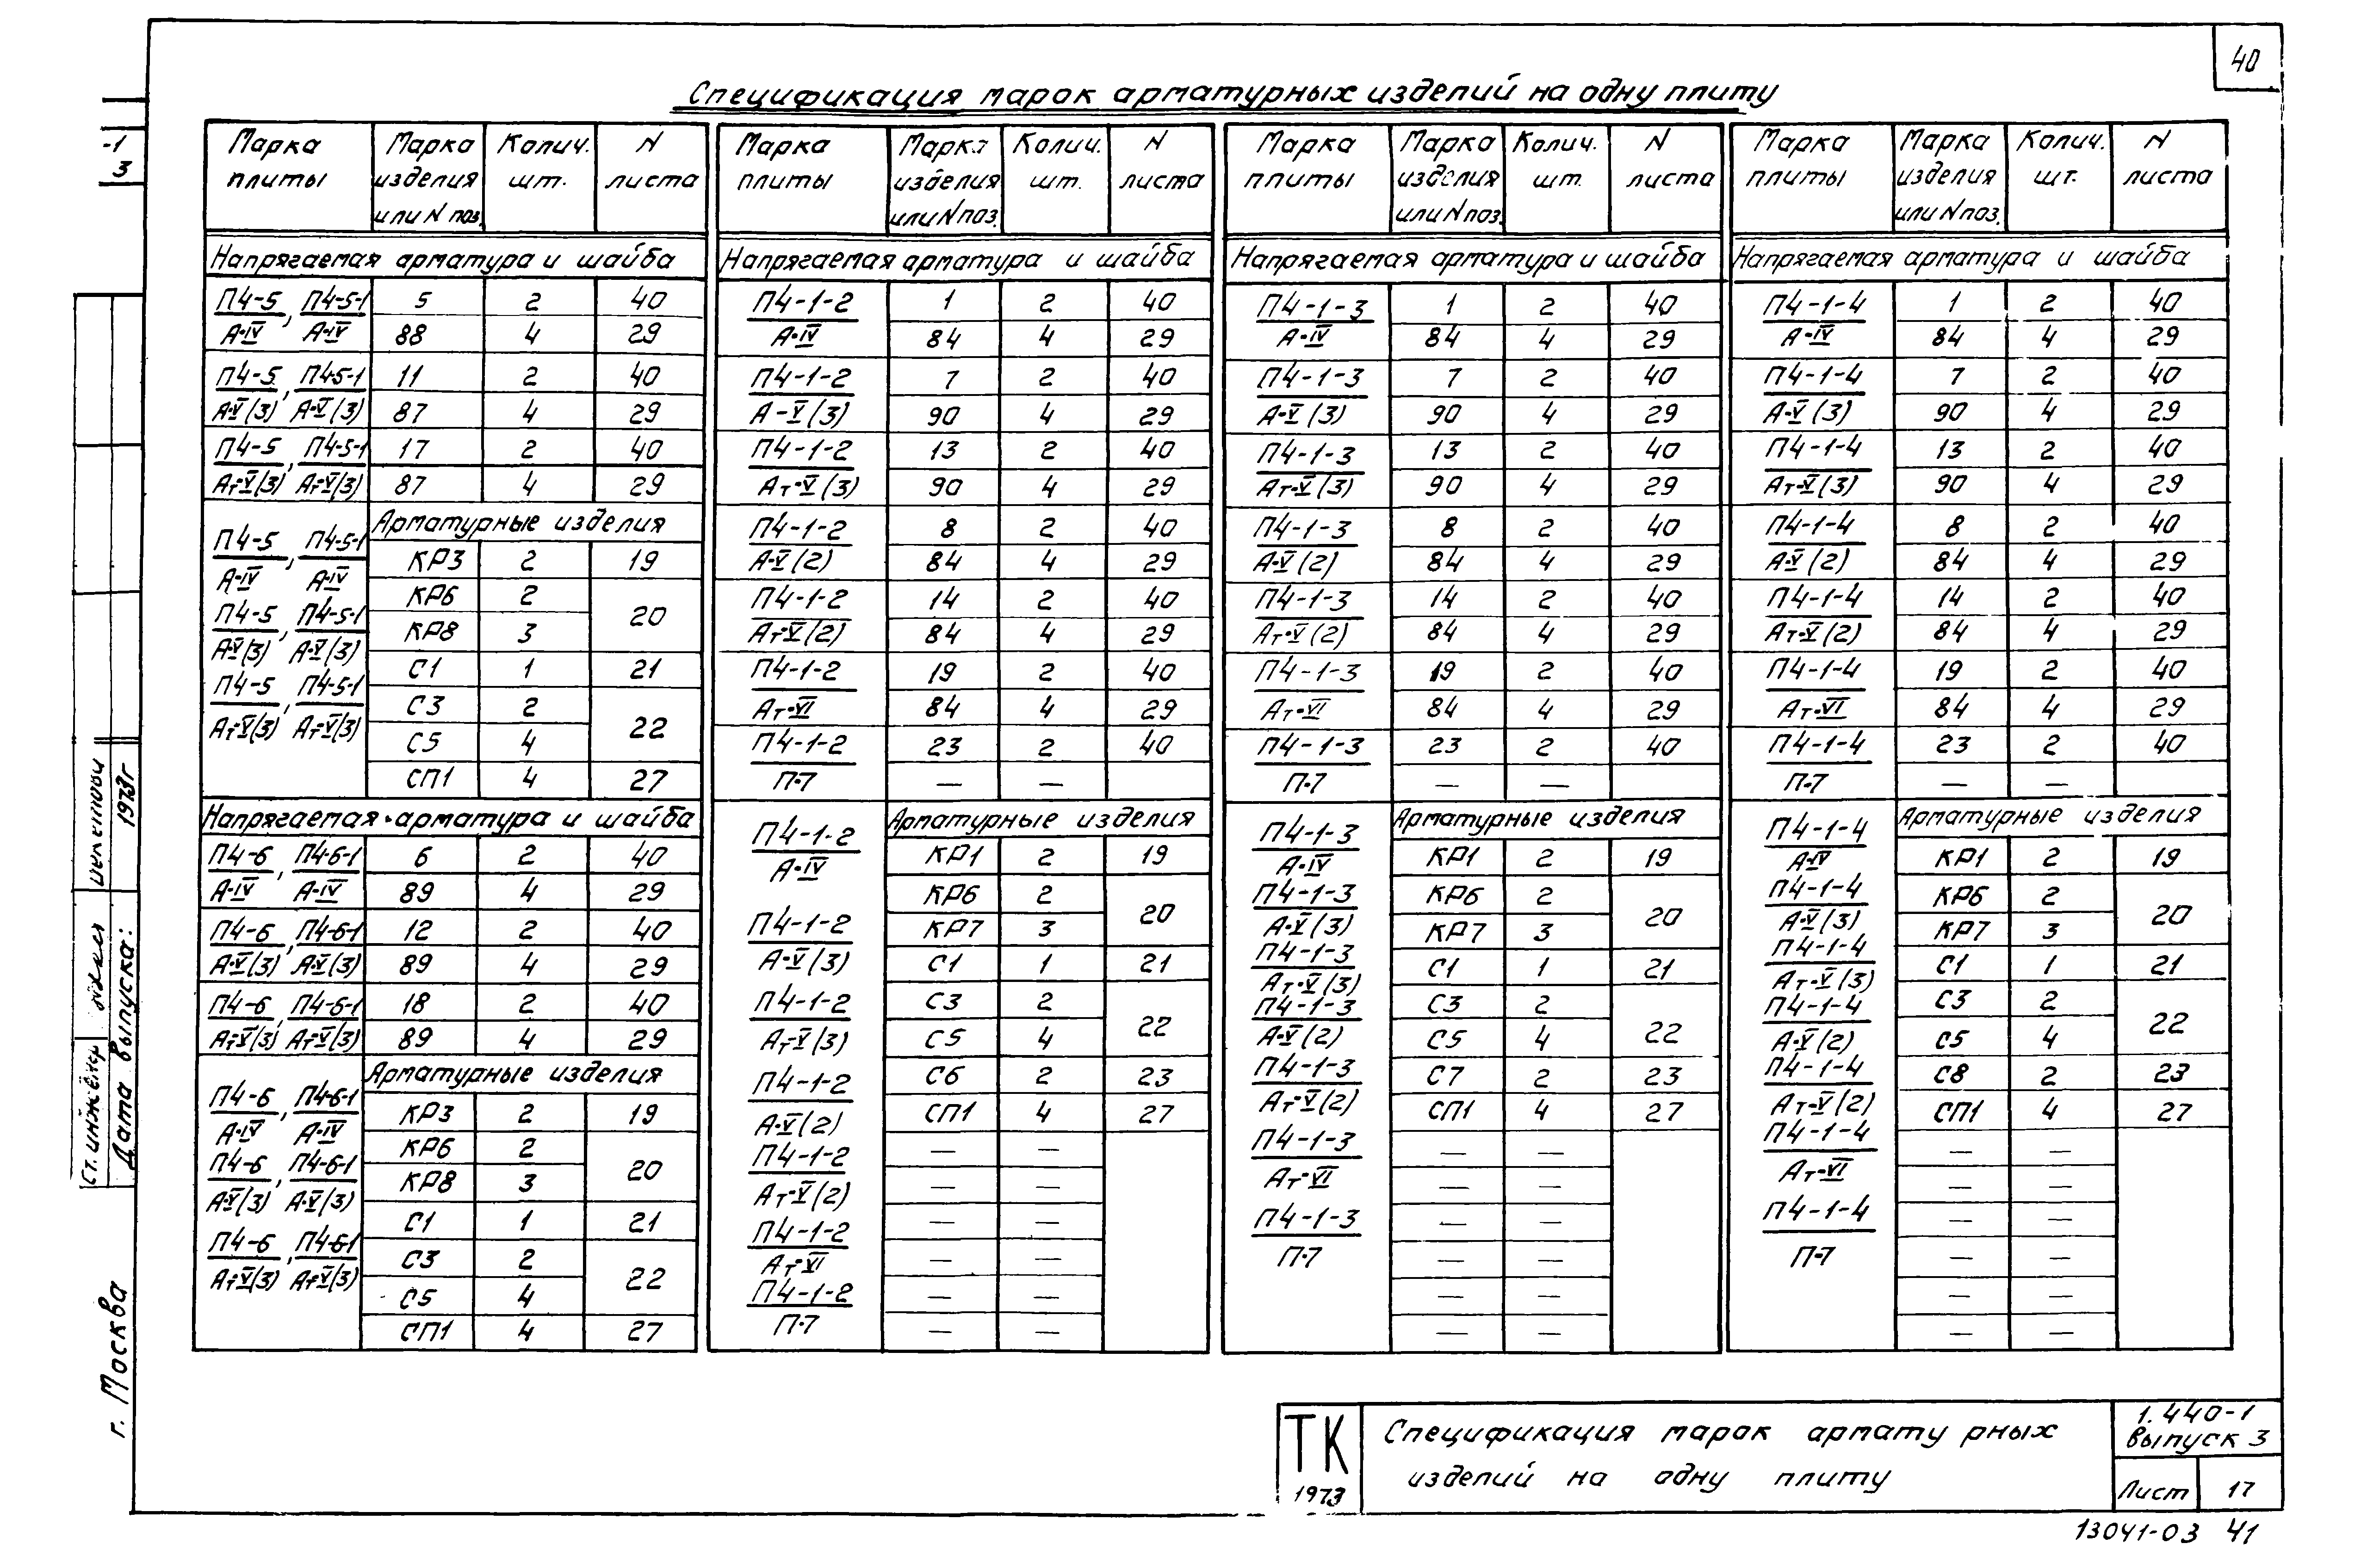 40
Спецификация марок арматурных изделий на одну плиту
-1
3
Марка плиты | Марка изделия или N поз. | Колич. шт. | N листа
Напрягаемая арматура и шайба
П4-5, П4-5-1 | 5 | 2 | 40
А-IV А-IV | 88 | 4 | 29
П4-5, П4-5-1 | 11 | 2 | 40
А-V(3) А-V(3) | 87 | 4 | 29
П4-5, П4-5-1 | 17 | 2 | 40
Ат-V(3) Ат-V(3) | 87 | 4 | 29
Арматурные изделия
П4-5, П4-5-1
А-IV А-IV
П4-5, П4-5-1
А-V(3) А-V(3)
П4-5, П4-5-1
Ат-V(3) Ат-V(3)
КР3 | 2 | 19
КР6 | 2 | 20
КР8 | 3
С1 | 1 | 21
С3 | 2 | 22
С5 | 4
СП1 | 4 | 27
Напрягаемая арматура и шайба
П4-6, П4-6-1 | 6 | 2 | 40
А-IV А-IV | 89 | 4 | 29
П4-6, П4-6-1 | 12 | 2 | 40
А-V(3) А-V(3) | 89 | 4 | 29
П4-6, П4-6-1 | 18 | 2 | 40
Ат-V(3) Ат-V(3) | 89 | 4 | 29
Арматурные изделия
П4-6, П4-6-1
А-IV А-IV
П4-6, П4-6-1
А-V(3) А-V(3)
П4-6, П4-6-1
Ат-V(3) Ат-V(3)
КР3 | 2 | 19
КР6 | 2 | 20
КР8 | 3
С1 | 1 | 21
С3 | 2 | 22
С5 | 4
СП1 | 4 | 27
Марка плиты | Марка изделия или N поз. | Колич. шт. | N листа
Напрягаемая арматура и шайба
П4-1-2 | 1 | 2 | 40
А-IV | 84 | 4 | 29
П4-1-2 | 7 | 2 | 40
А-V(3) | 90 | 4 | 29
П4-1-2 | 13 | 2 | 40
Ат-V(3) | 90 | 4 | 29
П4-1-2 | 8 | 2 | 40
А-V(2) | 84 | 4 | 29
П4-1-2 | 14 | 2 | 40
Ат-V(2) | 84 | 4 | 29
П4-1-2 | 19 | 2 | 40
Ат-VI | 84 | 4 | 29
П4-1-2 | 23 | 2 | 40
П-7 | — | —
Арматурные изделия
П4-1-2
А-IV
П4-1-2
А-V(3)
П4-1-2
Ат-V(3)
П4-1-2
А-V(2)
П4-1-2
Ат-V(2)
П4-1-2
Ат-VI
П4-1-2
П-7
КР1 | 2 | 19
КР6 | 2 | 20
КР7 | 3
С1 | 1 | 21
С3 | 2 | 22
С5 | 4
С6 | 2 | 23
СП1 | 4 | 27
— | —
— | —
— | —
— | —
— | —
— | —
Марка плиты | Марка изделия или N поз. | Колич. шт. | N листа
Напрягаемая арматура и шайба
П4-1-3 | 1 | 2 | 40
А-IV | 84 | 4 | 29
П4-1-3 | 7 | 2 | 40
А-V(3) | 90 | 4 | 29
П4-1-3 | 13 | 2 | 40
Ат-V(3) | 90 | 4 | 29
П4-1-3 | 8 | 2 | 40
А-V(2) | 84 | 4 | 29
П4-1-3 | 14 | 2 | 40
Ат-V(2) | 84 | 4 | 29
П4-1-3 | 19 | 2 | 40
Ат-VI | 84 | 4 | 29
П4-1-3 | 23 | 2 | 40
П-7 | — | —
Арматурные изделия
П4-1-3
А-IV
П4-1-3
А-V(3)
П4-1-3
Ат-V(3)
П4-1-3
А-V(2)
П4-1-3
Ат-V(2)
П4-1-3
Ат-VI
П4-1-3
П-7
КР1 | 2 | 19
КР6 | 2 | 20
КР7 | 3
С1 | 1 | 21
С3 | 2 | 22
С5 | 4
С7 | 2 | 23
СП1 | 4 | 27
— | —
— | —
— | —
— | —
— | —
— | —
Марка плиты | Марка изделия или N поз. | Колич. шт. | N листа
Напрягаемая арматура и шайба
П4-1-4 | 1 | 2 | 40
А-IV | 84 | 4 | 29
П4-1-4 | 7 | 2 | 40
А-V(3) | 90 | 4 | 29
П4-1-4 | 13 | 2 | 40
Ат-V(3) | 90 | 4 | 29
П4-1-4 | 8 | 2 | 40
А-V(2) | 84 | 4 | 29
П4-1-4 | 14 | 2 | 40
Ат-V(2) | 84 | 4 | 29
П4-1-4 | 19 | 2 | 40
Ат-VI | 84 | 4 | 29
П4-1-4 | 23 | 2 | 40
П-7 | — | —
Арматурные изделия
П4-1-4
А-IV
П4-1-4
А-V(3)
П4-1-4
Ат-V(3)
П4-1-4
А-V(2)
П4-1-4
Ат-V(2)
П4-1-4
Ат-VI
П4-1-4
П-7
КР1 | 2 | 19
КР6 | 2 | 20
КР7 | 3
С1 | 1 | 21
С3 | 2 | 22
С5 | 4
С8 | 2 | 23
СП1 | 4 | 27
— | —
— | —
— | —
— | —
— | —
— | —
Ст. инженер
Дата выпуска: 1973г
г. Москва
ТК
1973
Спецификация марок арматурных
изделий на одну плиту
1.440-1
выпуск 3
Лист 17
13041-03 41